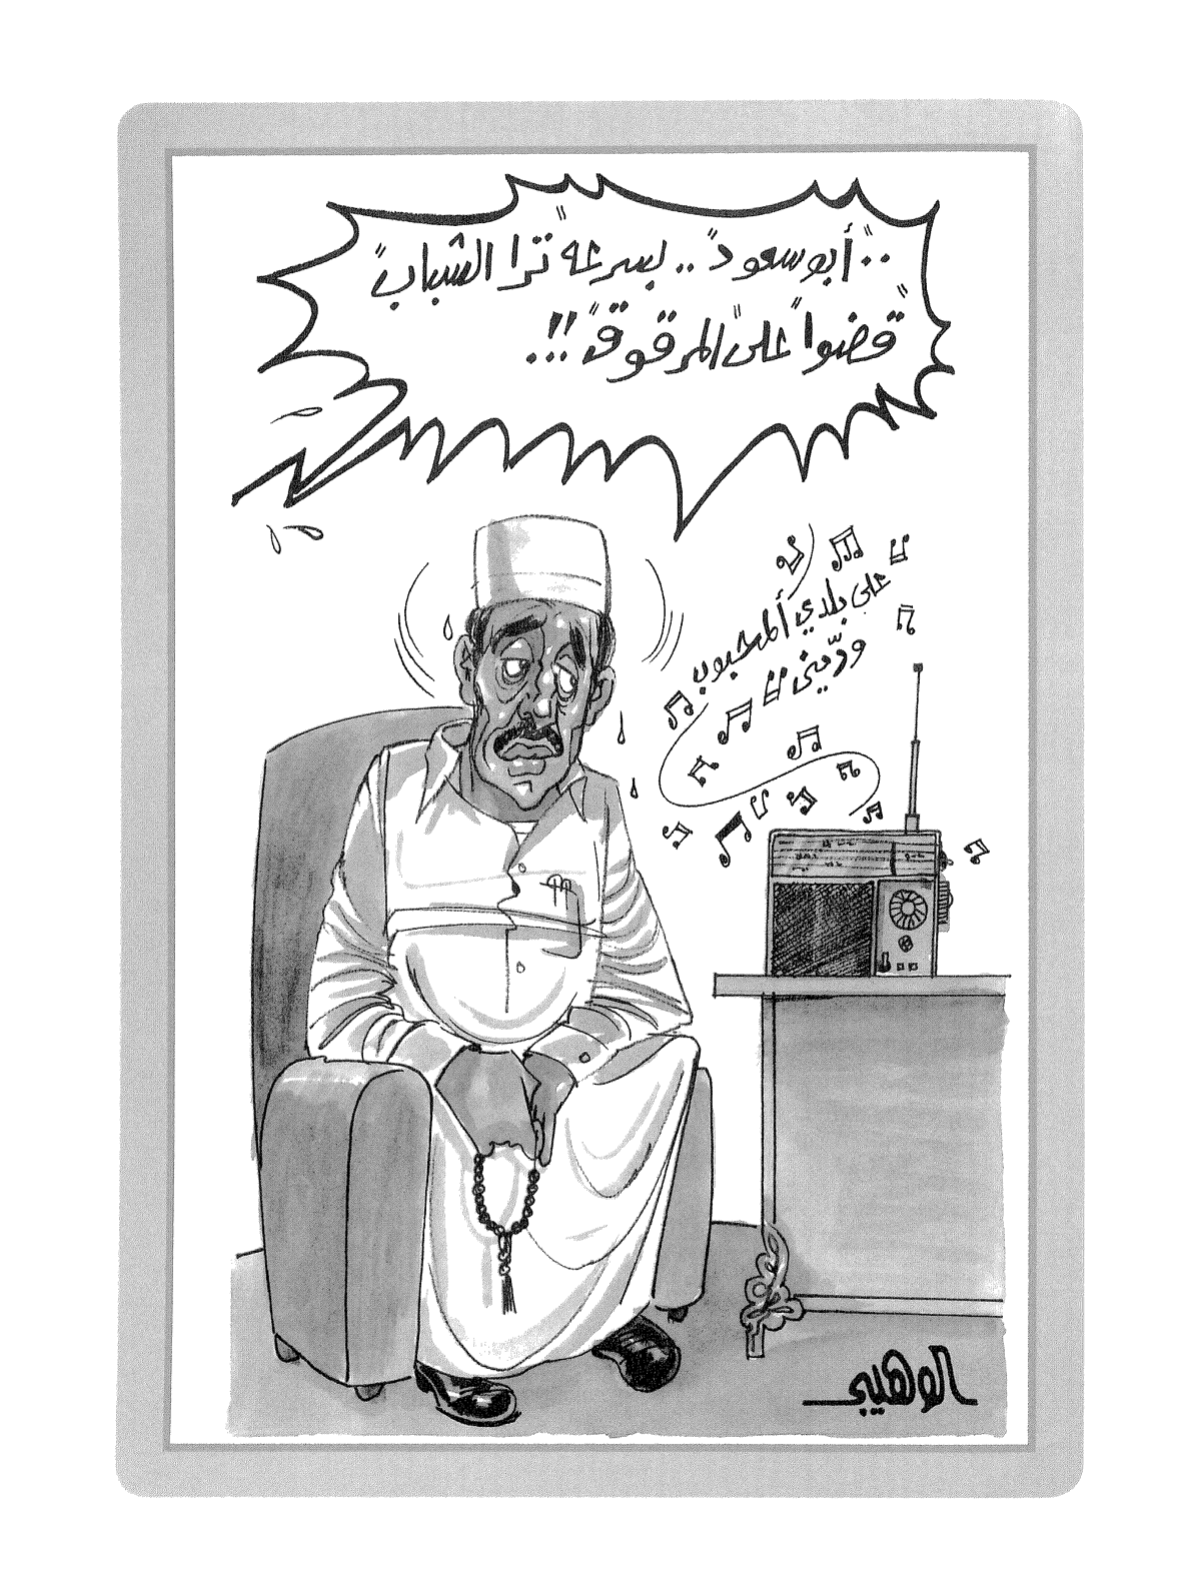 ..أبو سعود .. بسرعة ترا الشباب
قضوا على المرقوق !!.
على بلدي المحبوب
ودّيني
الوهيبي